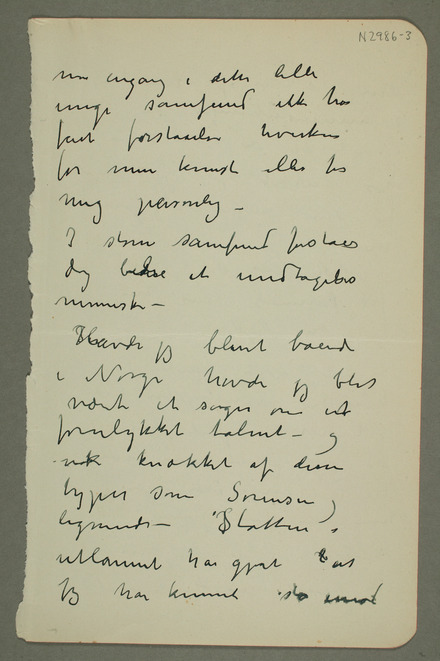 N2986-3
nu engang i dette lille
unge samfund ikke har
fåt forståelse hverken
for min kunst eller for
mig personlig –
I store samfund forståes
dog bedre et undtagelses
menneske –
Havde jeg blevet boende
i Norge havde jeg blot
været et sagn om et
forulykket talent – og
nok knækket af disse
typer som Sørensen og
lignende –
utlannet har gjort at
jeg har kunnet stå imod